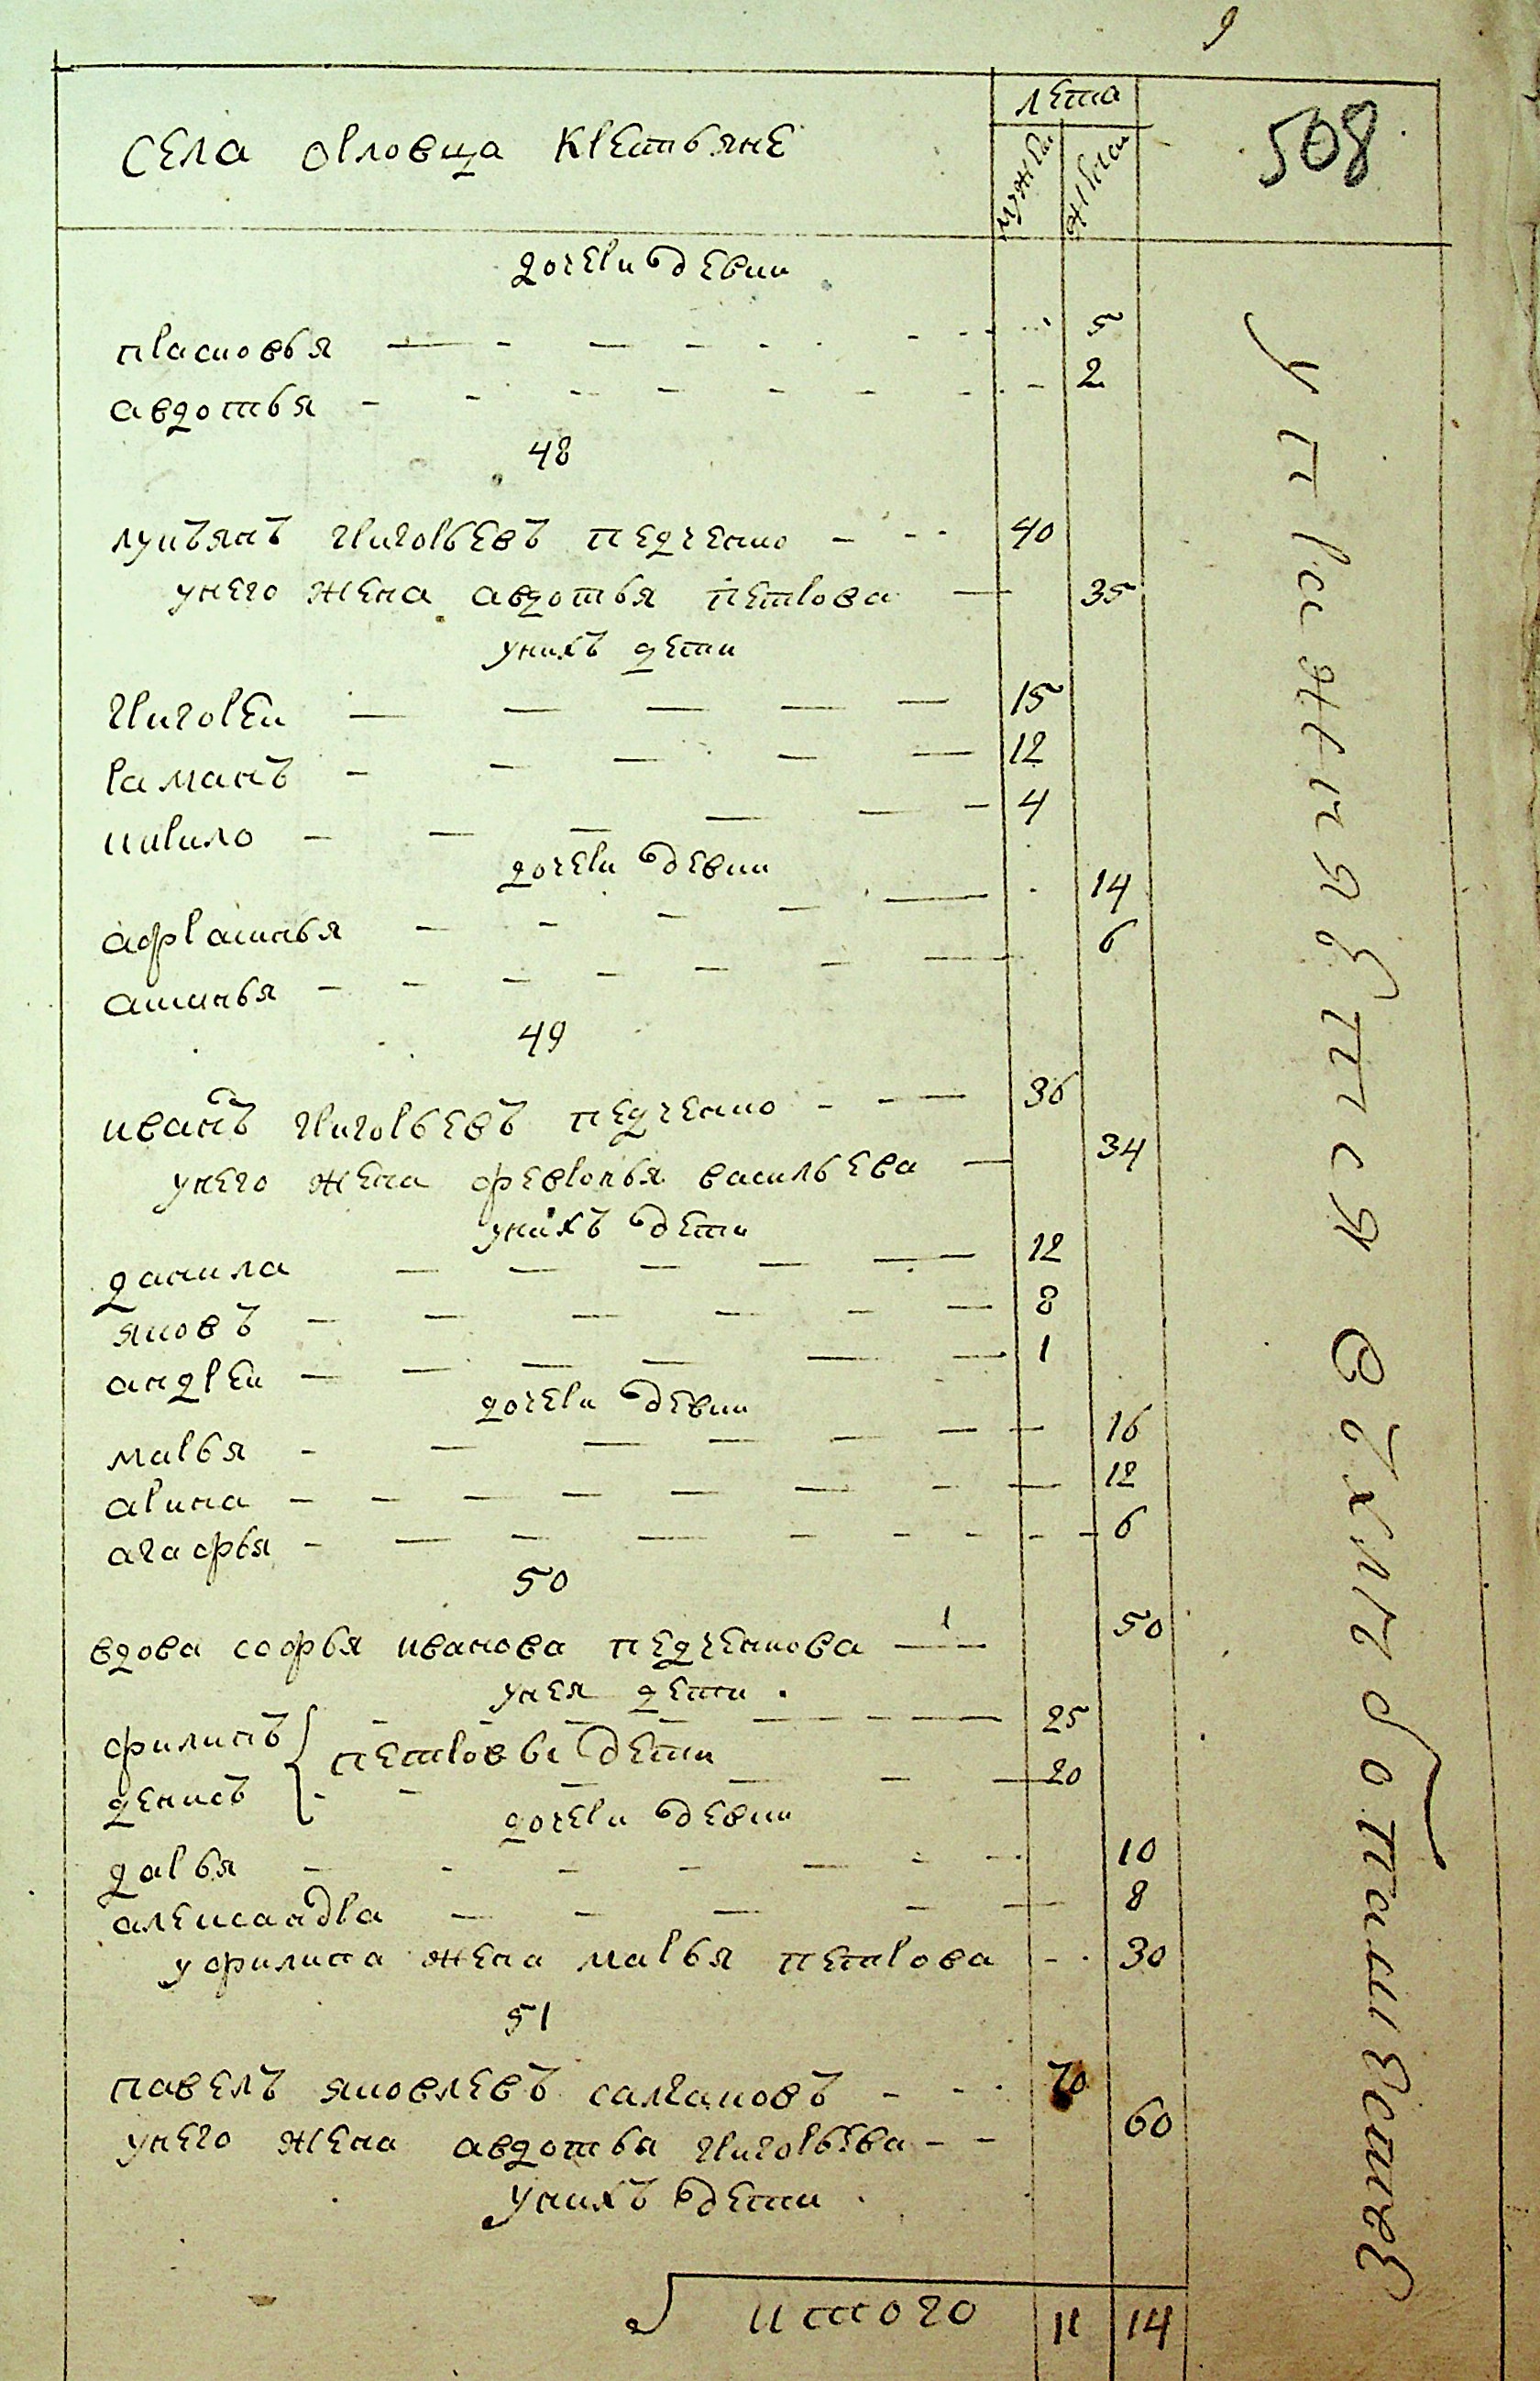 9
508
села орловца крестьяне
лета
мужеск
женск
дочери девки
прасковья 5
авдотья 2
48
лукъянъ григорьевъ редченко 40
унего жена авдотья петрова 35
унихъ дети
григореи 15
раманъ 12
кирило 4
дочери девки
афрасинья 14
аксинья 6
49
иванъ григорьевъ редченко 36
унего жена февронья васильева 34
унихъ дети
данила 12
яковъ 8
андреи 1
дочери девки
марья 16
арина 12
агафья 6
50
вдова софья иванова редченкова 50
унея дети
филипъ 25
петровы дети
денисъ 20
дочери девки
дарья 10
александра 8
уфилипа жена марья петрова 30
51
павелъ яковлевъ 70
унего жена авдотья григорьева 60
унихъ дети
итого 11 14
упражняется